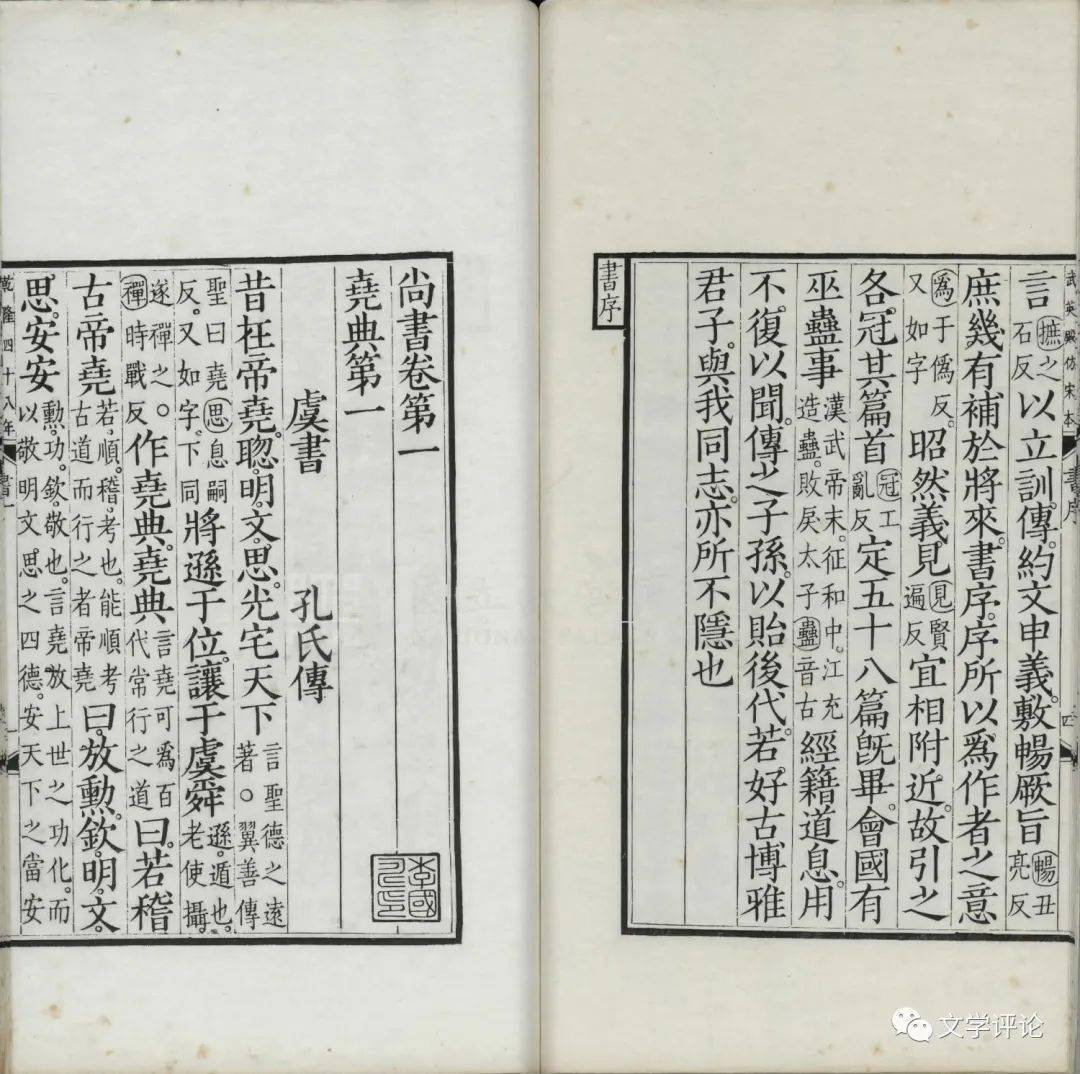 武英殿仿宋本 書序 四
言摭之石反以立訓傳。約文申義。敷暢厥旨暢丑亮反
庶幾有補於將來。書序。序所以爲作者之意
爲于僞反。又如字昭然義見。見賢遍反宜相附近。故引之
各冠其篇首冠工亂反定五十八篇旣畢。會國有
巫蠱事漢武帝末。征和中。江充造蠱。敗戾太子蠱音古經籍道息。用
不復以聞。傳之子孫。以貽後代。若好古博雅
君子。與我同志。亦所不隱也
書序
尚書卷第一
堯典第一
虞書 孔氏傳
昔在帝堯。聰。明。文。思。光宅天下言聖德之遠著。○翼善傳
聖曰堯思息嗣反。又如字。下同將遜于位。讓于虞舜遜。遁也。老使攝。
遂禪之。禪時戰反作堯典。堯典言堯可爲百代常行之道曰。若稽
古帝堯若。順。稽。考也。能順考古道而行之者帝堯曰。放勳。欽。明。文。
思。安安勳。功。欽。敬也。言堯放上世之功化。而以敬明文思之四德。安天下之當安
乾隆四十八年 書一
文学评论